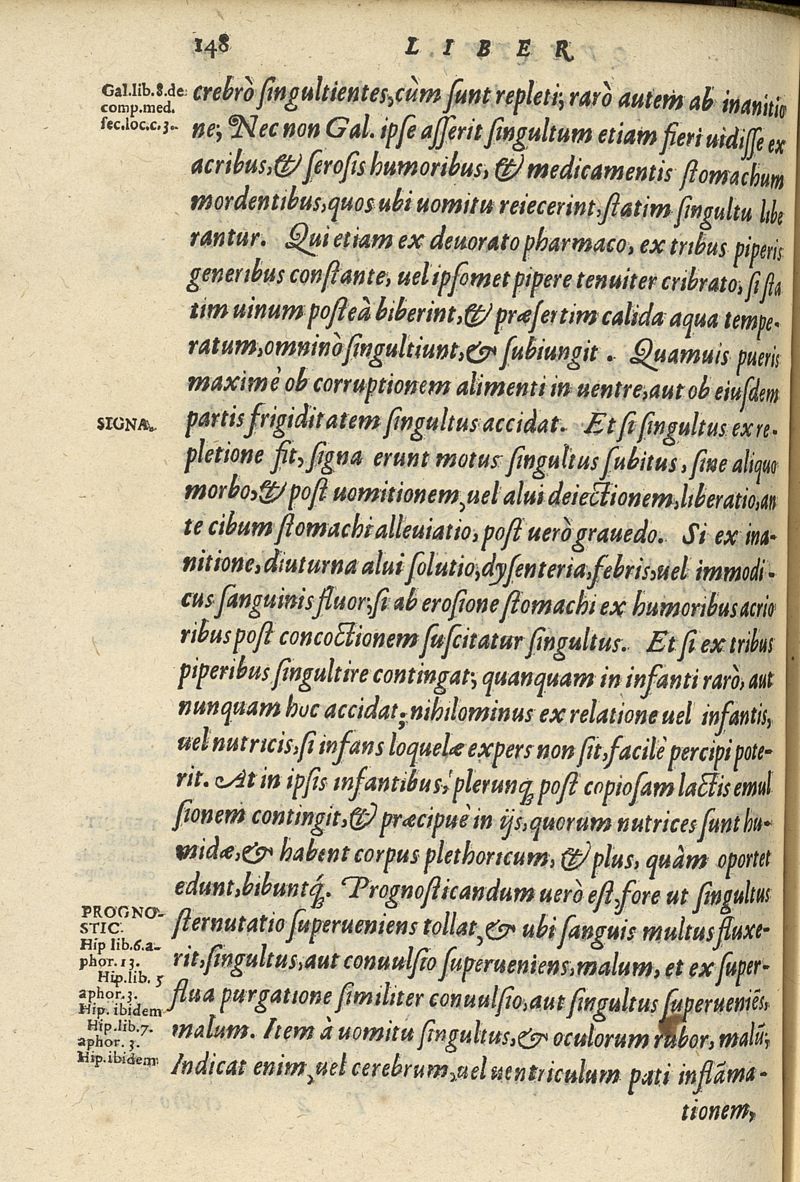 148 LIBER
Gal.lib.8.de
comp.med.
sec.loc.c.3.
crebrò ſingultientes, cùm ſunt repleti; rarò autem ab inanitio
ne; Nec non Gal. ipſe aſſerit ſingultum etiam fieri uidiſſe ex
acribus, & ſeroſis humoribus, & medicamentis ſtomachum
mordentibus, quos ubi uomitu reiecerint, ſtatim ſingultu libe
rantur. Qui etiam ex deuorato pharmaco, ex tribus piperis
generibus conſtante, uel ipſomet pipere tenuiter cribrato, ſi ſta
tim uinum poſteà biberint, & præſertim calida aqua tempe-
ratum, omninò ſingultiunt, & ſubiungit. Quamuis pueris
maximè ob corruptionem alimenti in uentre, aut ob eiuſdem
SIGNA.
partis frigiditatem ſingultus accidat. Et ſi ſingultus ex re-
pletione fit, ſigna erunt motus ſingultus ſubitus, ſine aliquo
morbo, & poſt uomitionem, uel alui deiectionem, liberatio, an
te cibum ſtomachi alleuiatio, poſt uerò grauedo. Si ex ina-
nitione, diuturna alui ſolutio, dyſenteria, febris, uel immodi-
cus ſanguinis fluor; ſi ab eroſione ſtomachi ex humoribus acrio
ribus poſt concoctionem ſuſcitatur ſingultus. Et ſi ex tribus
piperibus ſingultire contingat; quanquam in infanti rarò, aut
nunquam hoc accidat; nihilominus ex relatione uel infantis,
uel nutricis, ſi infans loquelæ expers non ſit, facilè percipi pote-
rit. At in ipſis infantibus, plerunq; poſt copioſam lactis emul
ſionem contingit, & præcipuè in ijs, quorum nutrices ſunt hu-
midæ, & habent corpus plethoricum, & plus, quàm oportet
edunt, bibuntq́;. Prognoſticandum uerò eſt, fore ut ſingultus
PROGNO-
STIC.
Hip lib.6.a-
phor. 13.
Hip.lib. 5
aphor. 3.
Hip. ibidem
Hip.lib.7.
aphor. 3.
Hip.ibidem
ſternutatio ſuperueniens tollat, & ubi ſanguis multus fluxe-
rit, ſingultus, aut conuulſio ſuperueniens, malum, et ex ſuper-
flua purgatione ſimiliter conuulſio, aut ſingultus ſuperueniẽs,
malum. Item à uomitu ſingultus, & oculorum rubor, malũ;
Indicat enim, uel cerebrum, uel uentriculum pati inflãma-
tionem,